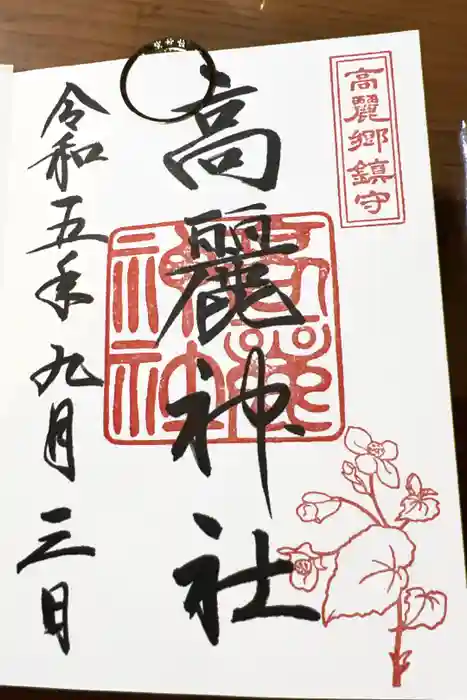 高麗郷鎮守
高麗神社
令和五年九月三日